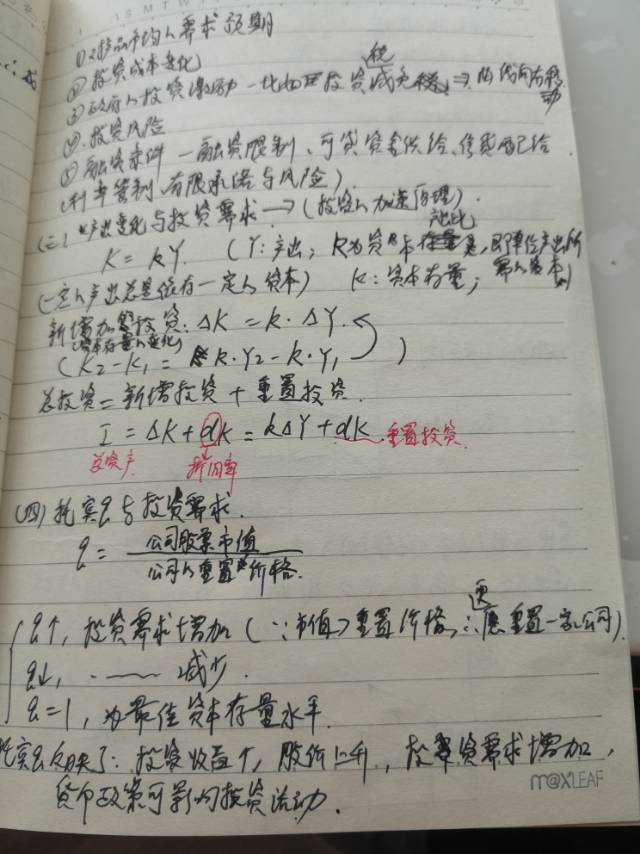 S M T W T
①对产品的需求预期
②投资成本变化
③政府的投资激励—比如 投资税减免 ⇒ 向右移动
④投资风险
⑤融资条件—融资限制、可贷资金供给、信贷配给
(利率管制、有限承诺与风险)
(三)产出变化与投资需求→(投资的加速原理)
K = kY. (Y:产出; k为资本产出比,即单位产出所需的资本)
(一定的产出总是依存一定的资本) K:资本存量;
新增加的投资:ΔK = k·ΔY.
(资本存量的变化)
(K₂-K₁ = k·Y₂-k·Y₁)
总投资=新增投资+重置投资.
I = ΔK+dK = kΔY+dK 重置投资
总资产 折旧率
(四)托宾q与投资需求.
q = 公司股票市值
公司的重置价格.
q↑,投资需求增加(∵市值>重置价格,∴应重置一家公司)
q↓, —— 减少.
q=1,为最佳资本存量水平.
托宾q反映了:投资收益↑,股价上升,投资需求增加,
货币政策可影响投资活动.
m@XLEAF